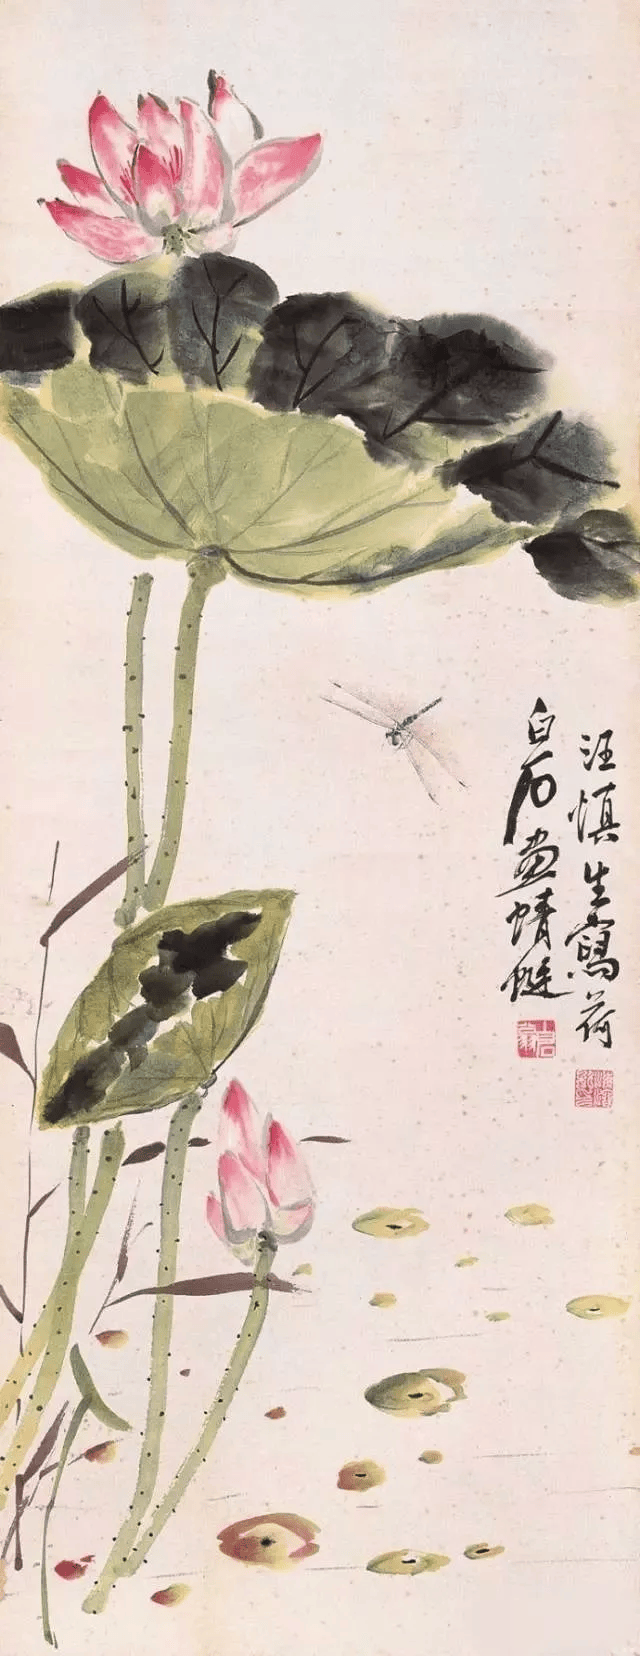 汪慎生寫荷
白石畫蜻蜓